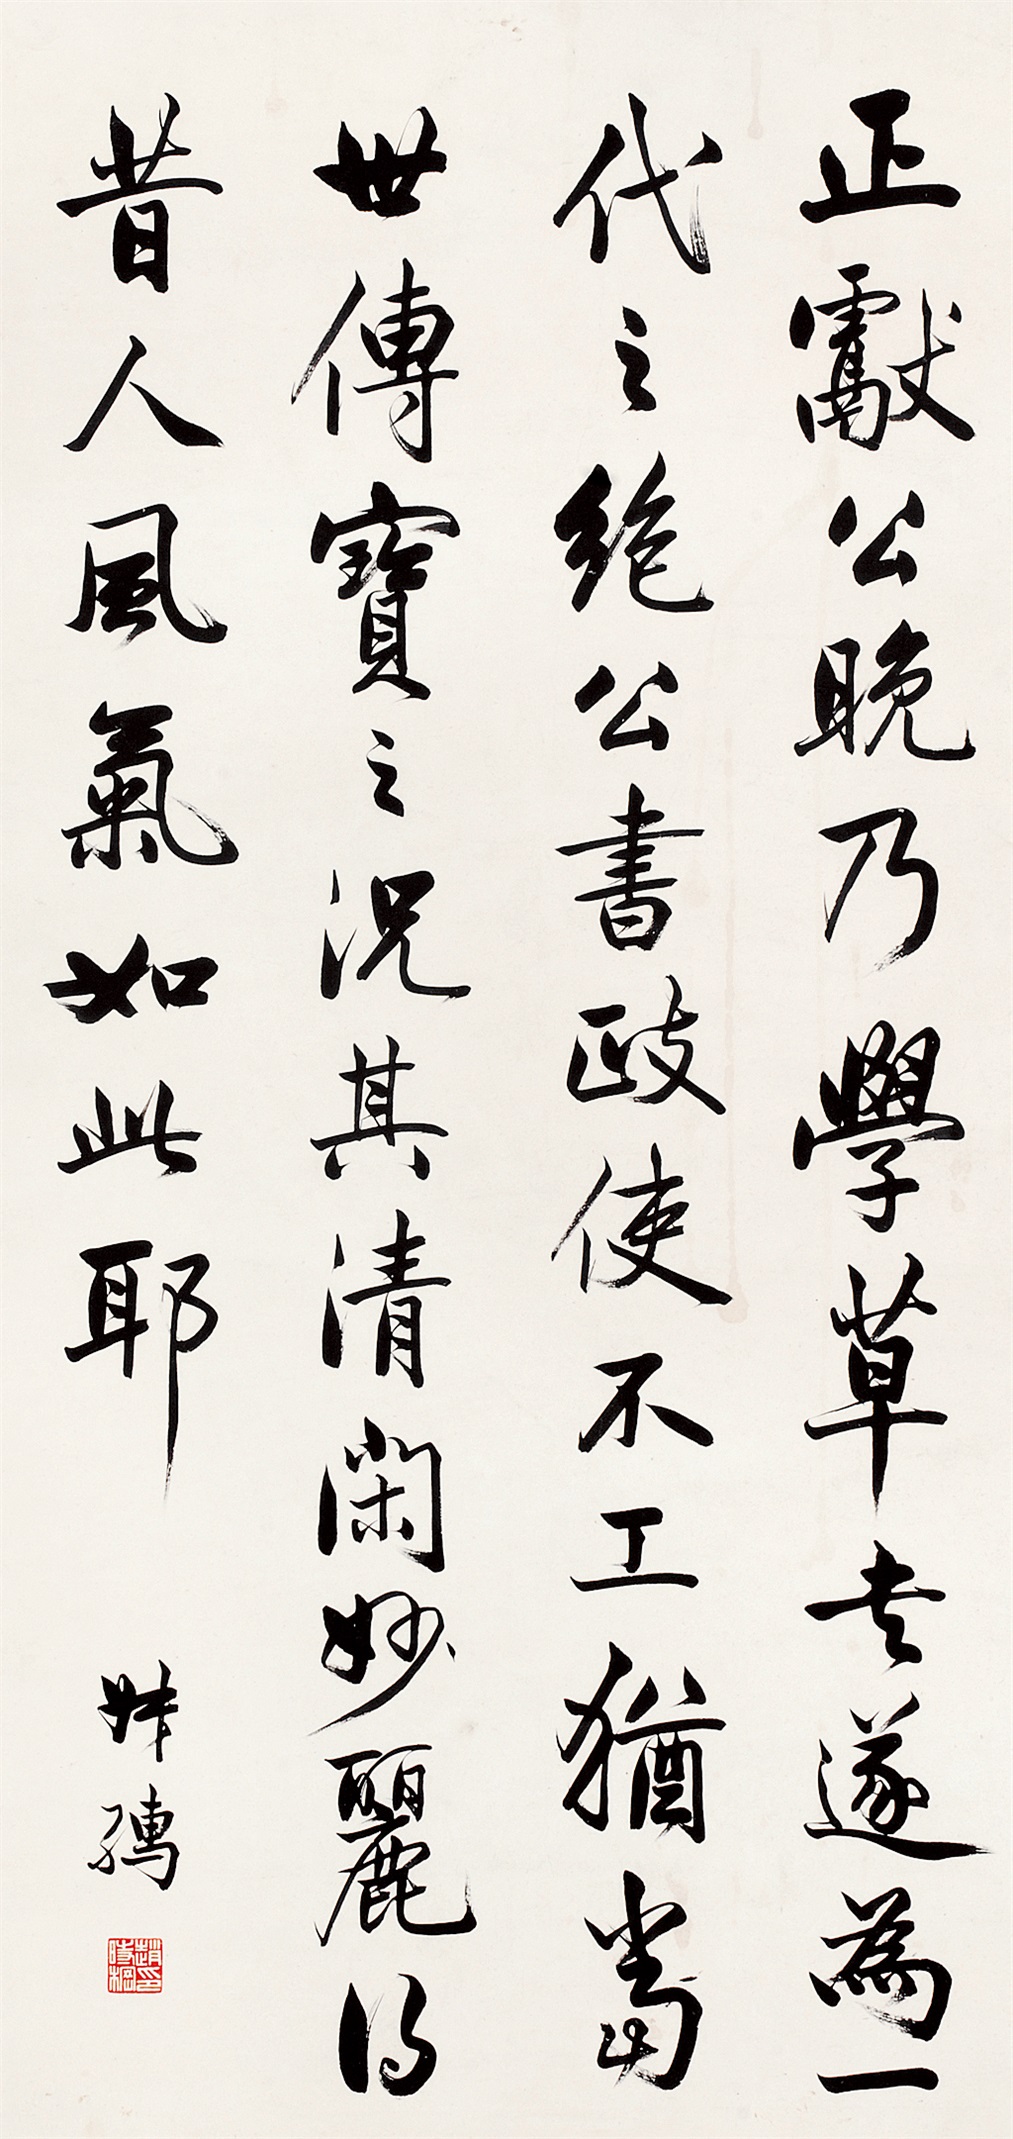 正獻公晚乃學草書遂為一
代之絶公書政使不工猶當
世傳寶之況其清閑妙麗得
昔人風氣如此耶
叔孺
趙時棡印